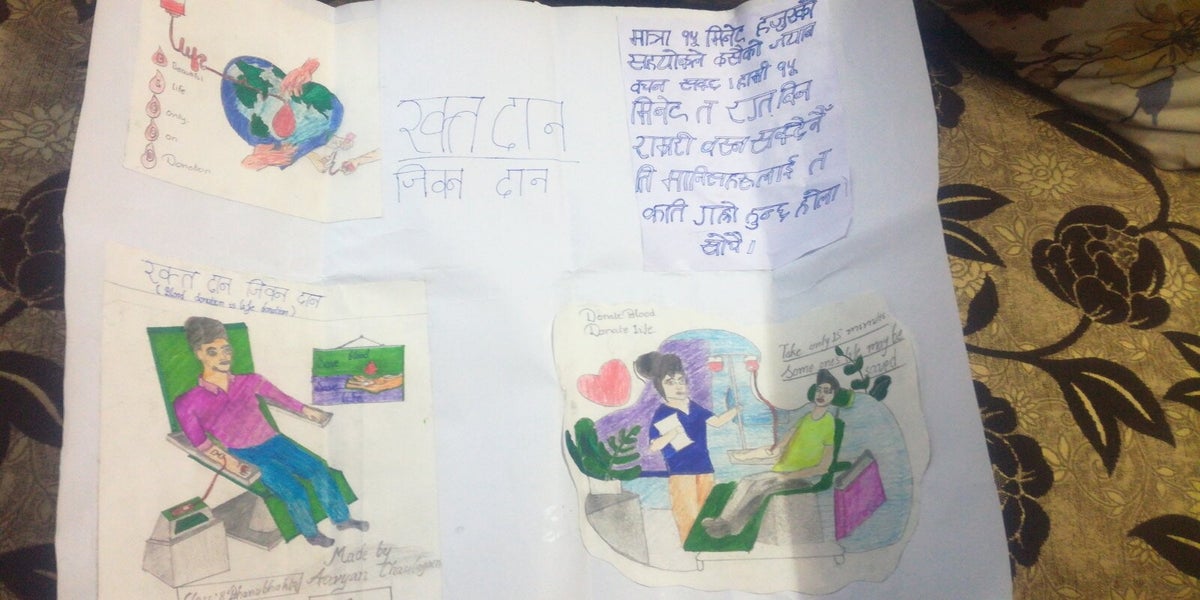 Life
Beautiful
Life
only
on
Donation
रक्त दान
जिवन दान
मात्रा १५ मिनेट हजुरको
सहयोगले कसैको ज्यान
बच्न सक्छ । हामी १५
मिनेट त रात दिन
राम्ररी बस्न सक्दैनौँ
ति मानिसहरुलाई त
कति गाह्रो हुन्छ होला
खोपै ।
रक्त दान जिवन दान
(Blood donation is life donation)
Blood
Save
Life
Made by
Aaryan
Class: 8
Donate Blood
Donate Life
Take only 15 minutes
Some ones life may be
saved